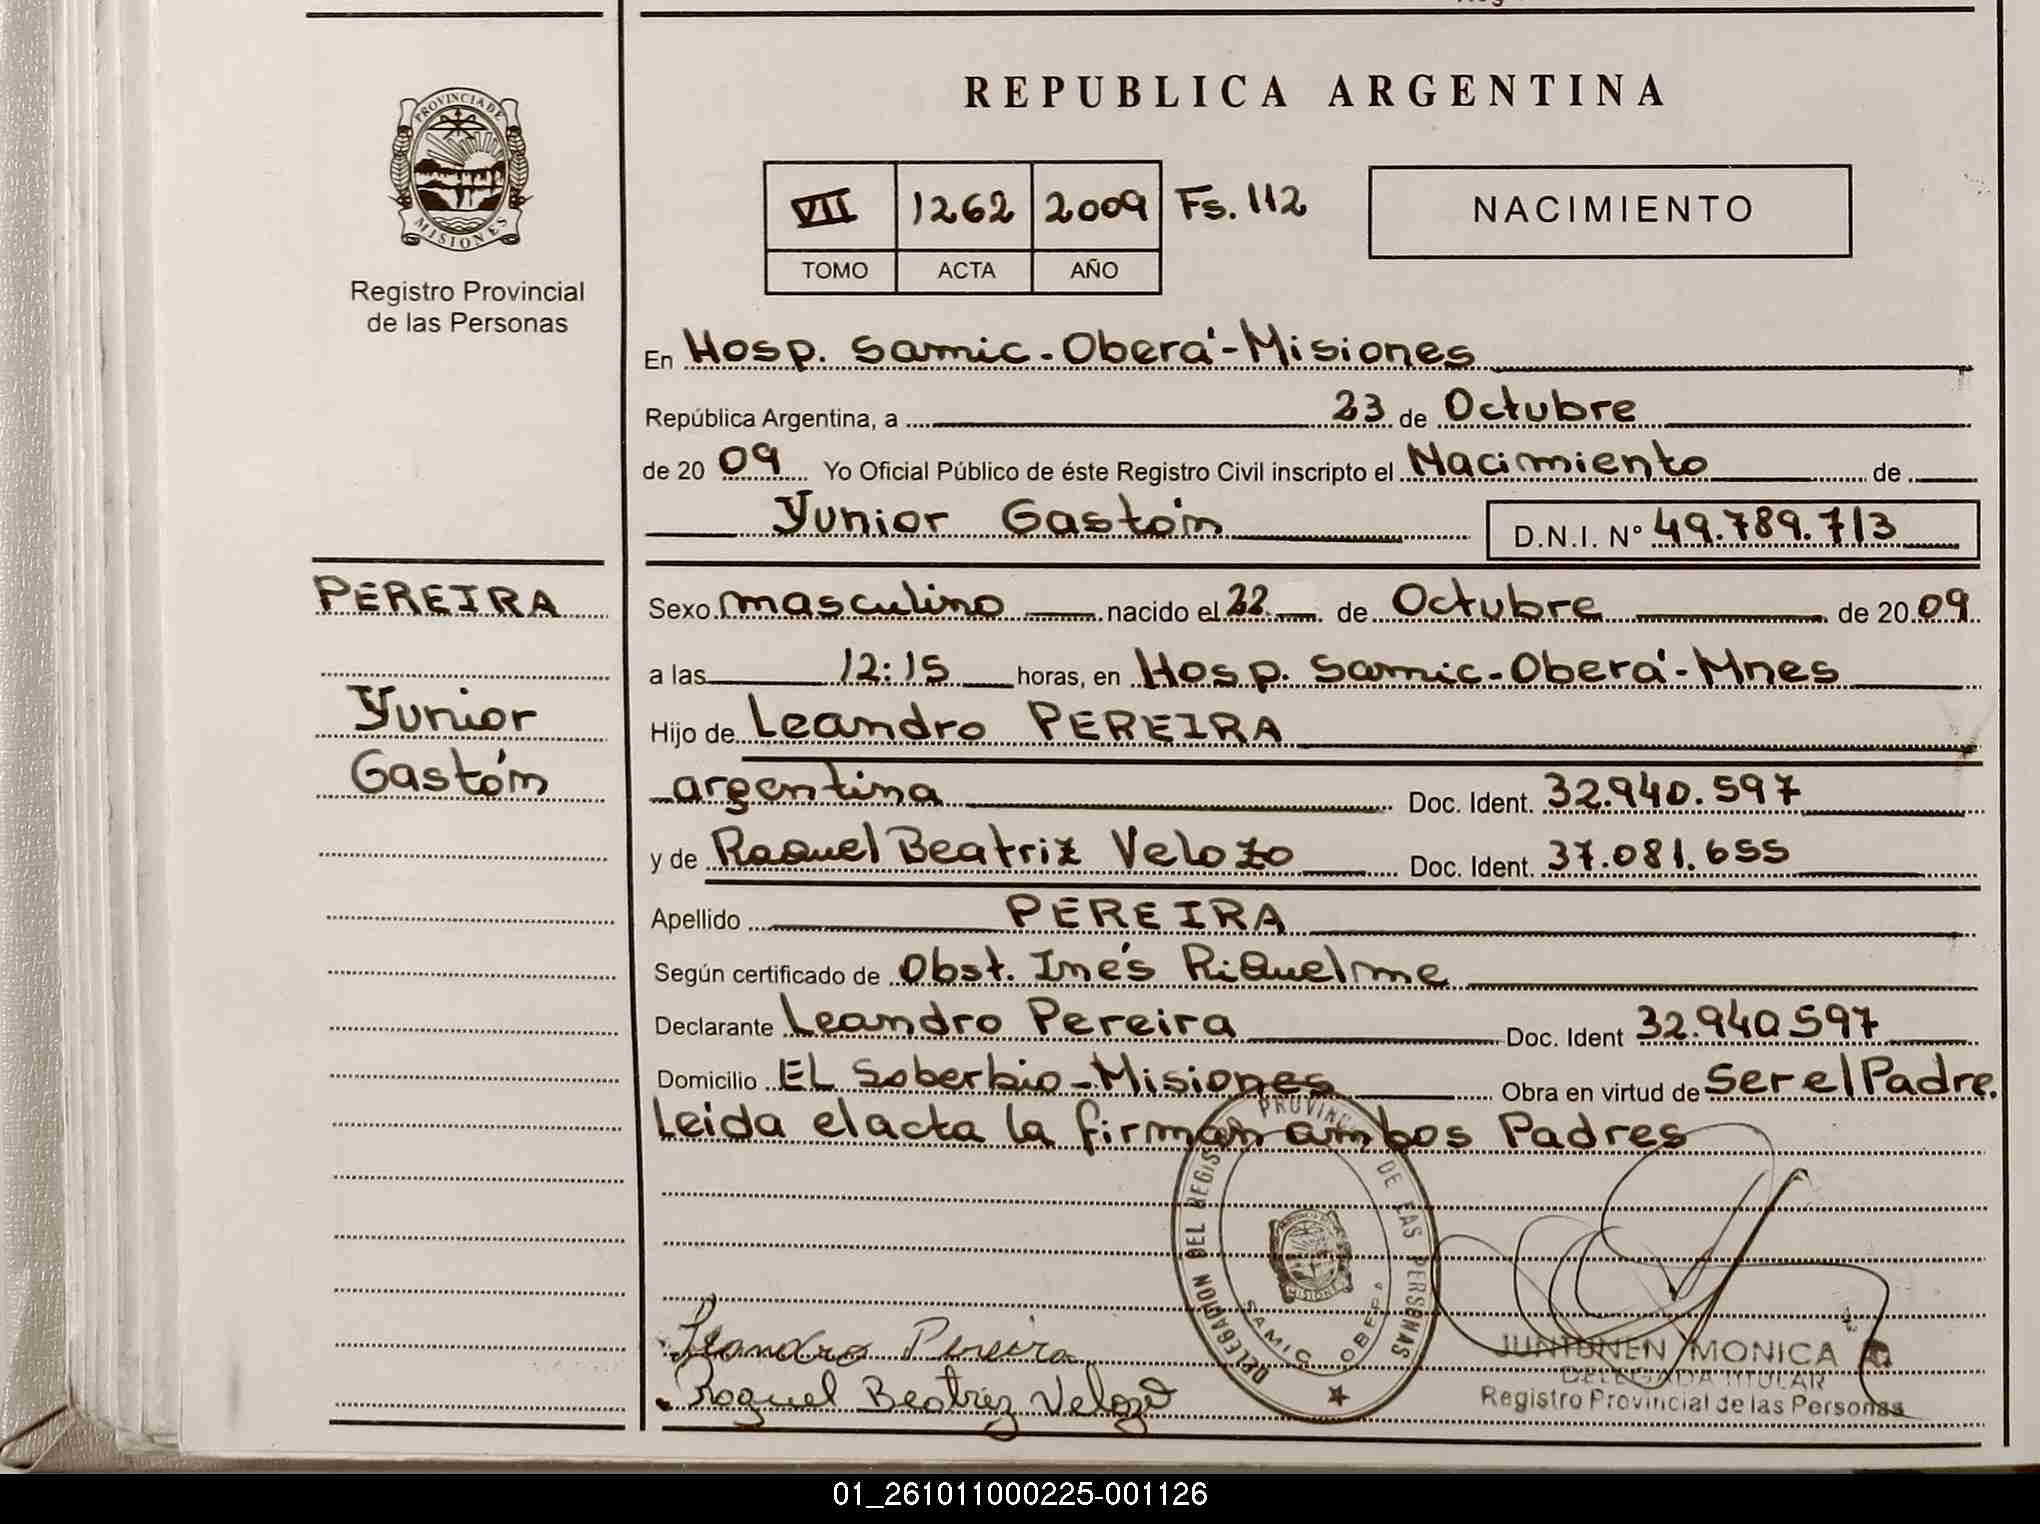 REPUBLICA ARGENTINA
PROVINCIA DE
MISIONES
Registro Provincial
de las Personas
VII 1262 2009 Fs. 112
TOMO ACTA AÑO
NACIMIENTO
En Hosp. Samic-Oberá-Misiones
República Argentina, a 23 de Octubre
de 20 09 Yo Oficial Público de éste Registro Civil inscripto el Nacimiento de
Yunior Gastón D.N.I. N° 49.789.713
PEREIRA
Yunior
Gastón
Sexo masculino nacido el 22 de Octubre de 20 09
a las 12:15 horas, en Hosp. Samic-Oberá-Mnes
Hijo de Leandro PEREIRA
argentina Doc. Ident. 32.940.597
y de Raquel Beatriz Velozo Doc. Ident. 37.081.655
Apellido PEREIRA
Según certificado de Obst. Inés Riquelme
Declarante Leandro Pereira Doc. Ident 32.940597
Domicilio EL Soberbio-Misiones Obra en virtud de Ser el Padre.
Leida el acta la firman ambos Padres
DELEGACION DEL REGISTRO PROVINCIAL DE LAS PERSONAS
MISIONES
SAMIC OBERA
Leandro Pereira
Raquel Beatriz Velozo
JUNTUNEN MONICA
DELEGADA TITULAR
Registro Provincial de las Personas
01_261011000225-001126